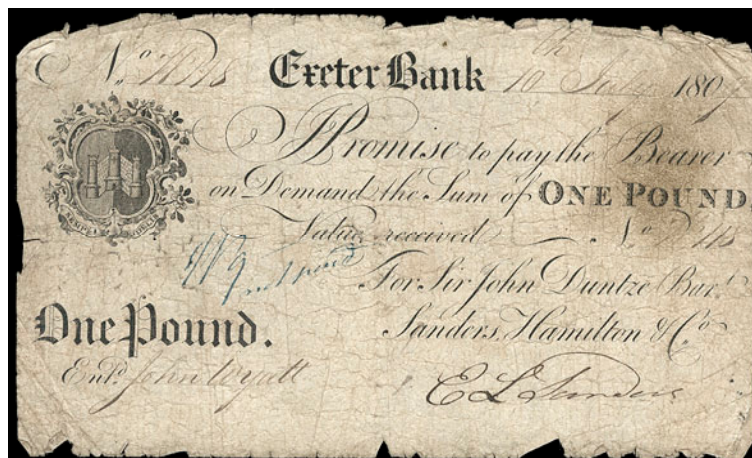 No. Exeter Bank 10th July 1809
I Promise to pay the Bearer
on Demand the Sum of ONE POUND.
Value received No.
For Sir John Duntze Bart.
One Pound. Sanders, Hamilton & Co.
Entd. John Wyatt
E L Sanders
SEMPER FIDELIS